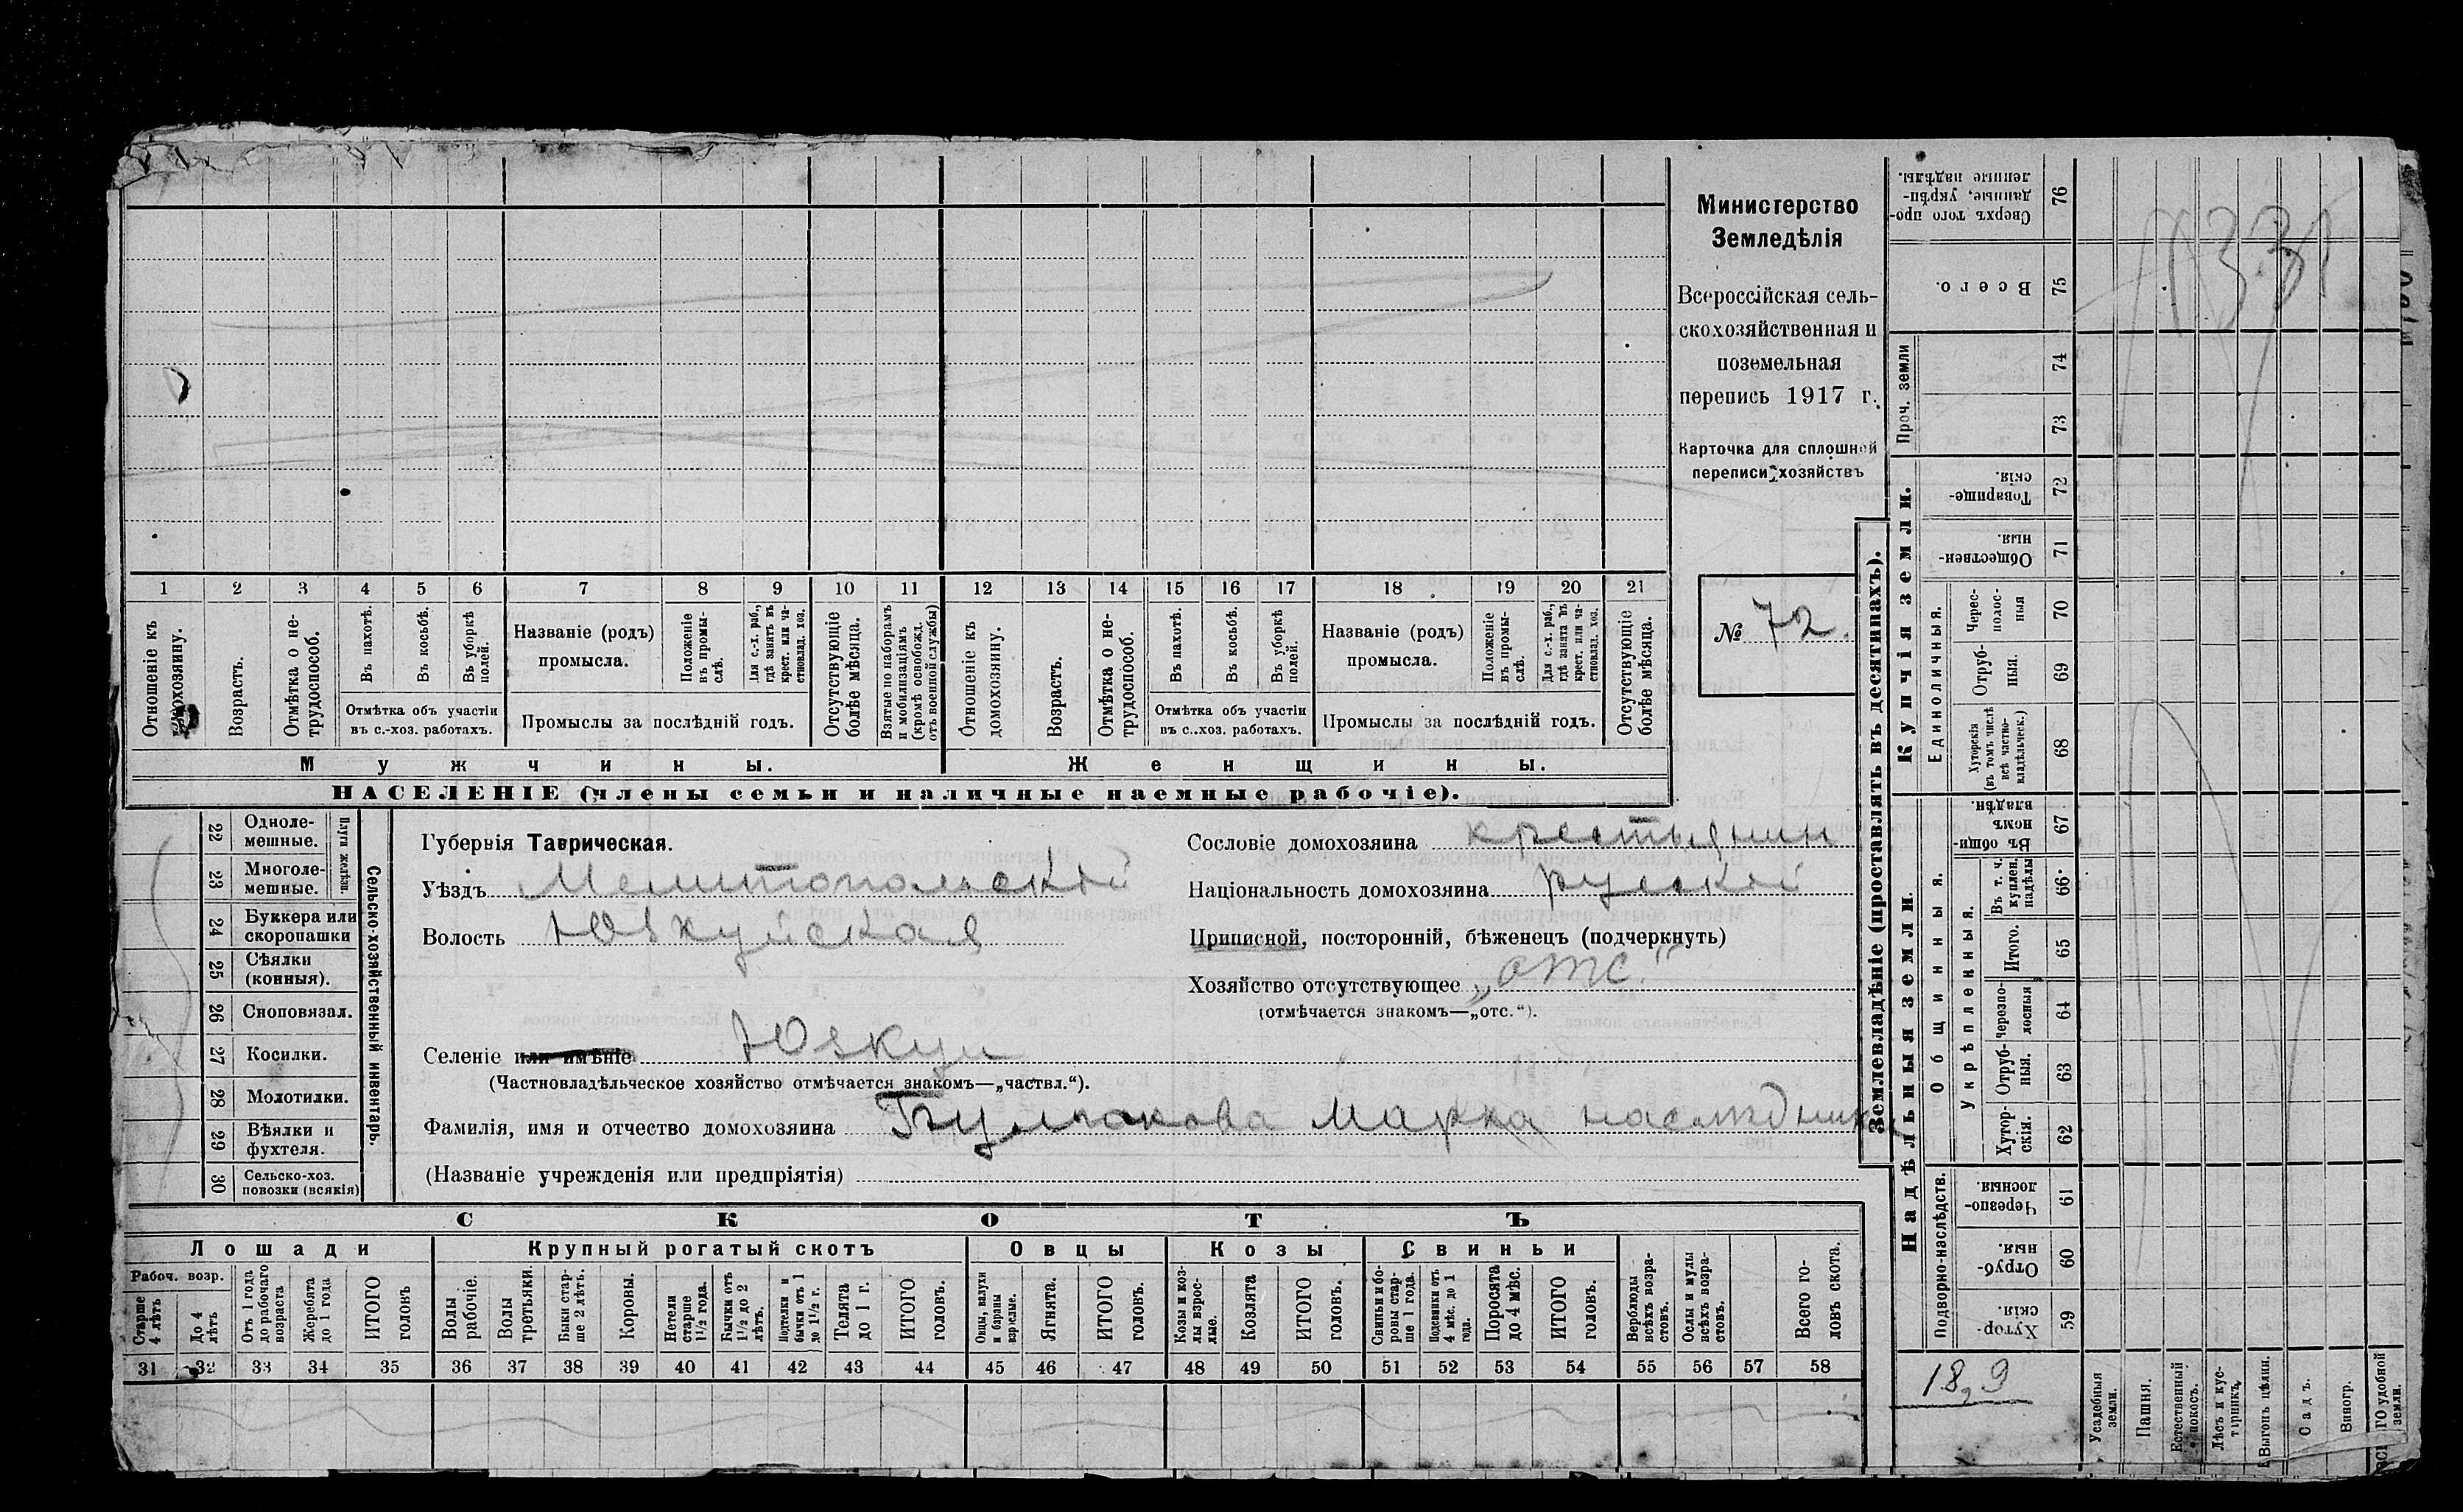 Министерство
Земледѣлія
Всероссійская сель-
скохозяйственная и
поземельная
перепись 1917 г.
Карточка для сплошной
переписи хозяйствъ
№ 72.
1 2 3 4 5 6 7 8 9 10 11 12 13 14 15 16 17 18 19 20 21
Отношеніе къ домохозяину.
Возрастъ.
Отмѣтка о не-
трудоспособ.
Въ пахотѣ.
Въ косьбѣ.
Въ уборкѣ
полей.
Отмѣтка объ участіи
въ с.-хоз. работахъ.
Названіе (родъ)
промысла.
Положеніе
въ промы-
слѣ.
Для с.-х. раб.,
гдѣ занятъ въ
крест. или ча-
стновлад. хоз.
Промыслы за послѣдній годъ.
Отсутствующіе
болѣе мѣсяца.
Взятые по наборамъ
и мобилизаціямъ
(кромѣ освобожд.
отъ военной службы)
Отношеніе къ
домохозяину.
Возрастъ.
Отмѣтка о не-
трудоспособ.
Въ пахотѣ.
Въ косьбѣ.
Въ уборкѣ
полей.
Отмѣтка объ участіи
въ с..хоз. работахъ.
Названіе (родъ)
промысла.
Положеніе
въ промы-
слѣ.
Для с.-х. раб.,
гдѣ занята въ
крест. или ча-
стновлад. хоз.
Промыслы за послѣдній годъ.
Отсутствующіе
болѣе мѣсяца.
Мужчины.
Женщины.
НАСЕЛЕНІЕ (члены семьи и наличные наемные рабочіе).
22 Однолемешные.
23 Многолемешные.
Плуги желѣзн.
24 Буккера или
скоропашки
25 Сѣялки
(конныя).
26 Сноповязал.
27 Косилки.
28 Молотилки.
29 Вѣялки и
фухтеля.
30 Сельско-хоз.
повозки (всякія)
Сельско-хозяйственный инвентарь.
Губернія Таврическая.
Уѣздъ Мелитопольский
Волость Юзкуйская
Селеніе или имѣніе Юзкуи
(Частновладѣльческое хозяйство отмѣчается знакомъ—„частвл.“).
Фамилія, имя и отчество домохозяина Булгакова Марка наследники
(Названіе учрежденія или предпріятія)
Сословіе домохозяина крестьянин
Національность домохозяина русский
Приписной, посторонній, бѣженецъ (подчеркнуть)
Хозяйство отсутствующее „отс.“
(отмѣчается знакомъ—„отс.“).
СКОТЪ
Лошади
Крупный рогатый скотъ
Овцы
Козы
Свиньи
Рабоч. возр.
Старше
4 лѣтъ
До 4
лѣтъ
Отъ 1 года
до рабочаго
возраста
Жеребята
до 1 года
ИТОГО
головъ
Волы
рабочіе.
Волы
третьяки.
Быки стар-
ше 2 лѣтъ.
Коровы.
Нетели
старше
1½ года.
Бычки отъ
1½ до 2
лѣтъ.
Подтелки и
бычки отъ 1
до 1½ г.
Телята
до 1 г.
ИТОГО
головъ.
Овцы, валухи
и бараны
взрослые.
Ягнята.
ИТОГО
головъ.
Козы и коз-
лы взрос-
лые.
Козлята
ИТОГО
головъ.
Свиньи и бо-
ровы стар-
ше 1 года.
Подсвинки отъ
4 мѣс. до 1
года.
Поросята
до 4 мѣс.
ИТОГО
головъ.
Верблюды
всѣхъ возра-
стовъ.
Ослы и мулы
всѣхъ возра-
стовъ.
Всего го-
ловъ скота.
31 32 33 34 35 36 37 38 39 40 41 42 43 44 45 46 47 48 49 50 51 52 53 54 55 56 57 58
Землевладѣніе (проставлять въ десятинахъ).
Надѣльныя земли.
Купчія земли.
Проч. земли
Подворно-наслѣдств.
Общинныя.
Укрѣпленныя.
Единоличныя.
Сверхъ того про-
данные, укрѣп-
ленные надѣлы. 76
Всего. 75
74
73
Товарище-
скія. 72
Обществен-
ныя. 71
Черес-
полос-
ныя 70
Отруб-
ныя. 69
Хуторскія
(въ томъ числѣ
всѣ частно-
владѣльческ.) 68
Въ общин-
номъ
владѣн. 67
Въ т. ч.
куплен.
надѣлы 66
Итого. 65
Черезпо-
лосныя 64
Отруб-
ныя. 63
Хутор-
скія. 62
Черезпо-
лосныя. 61
Отруб-
ныя. 60
Хутор-
скія. 59
18,9
Усадебныя
земли.
Пашня.
Естественный
покосъ.
Лѣсъ и кус-
тарникъ.
Выгонъ цѣлин.
Садъ.
Виногр.
ВСЕГО удобной
земли.